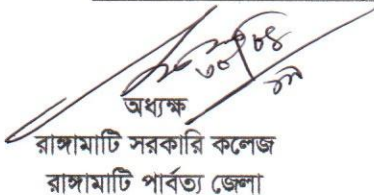 অধ্যক্ষ
রাঙ্গামাটি সরকারি কলেজ
রাঙ্গামাটি পার্বত্য জেলা